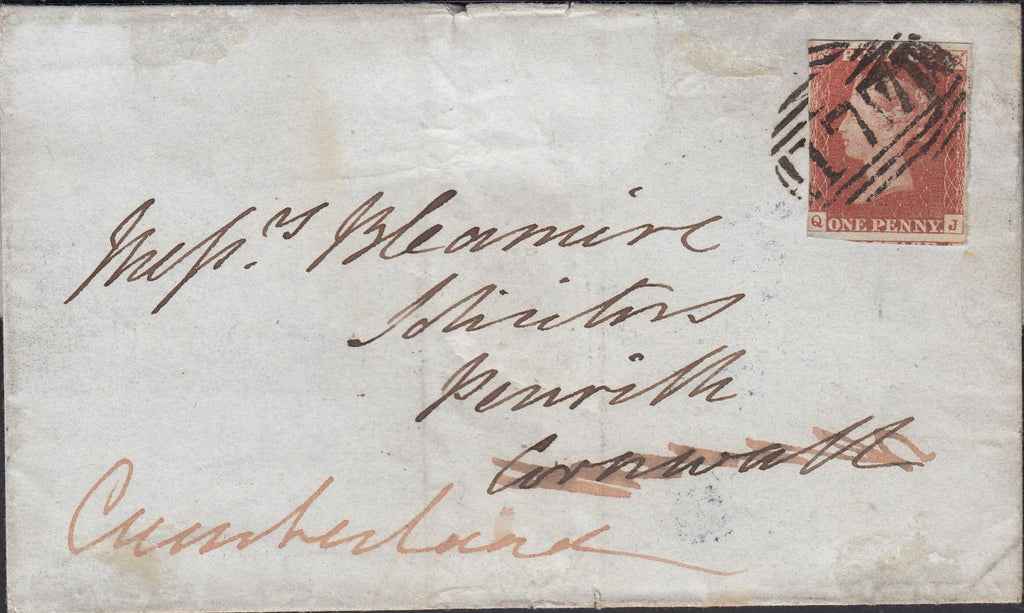 177
Q ONE PENNY. J
Messrs. Bleamire
Solicitors
Penrith
Cornwall
Cumberland